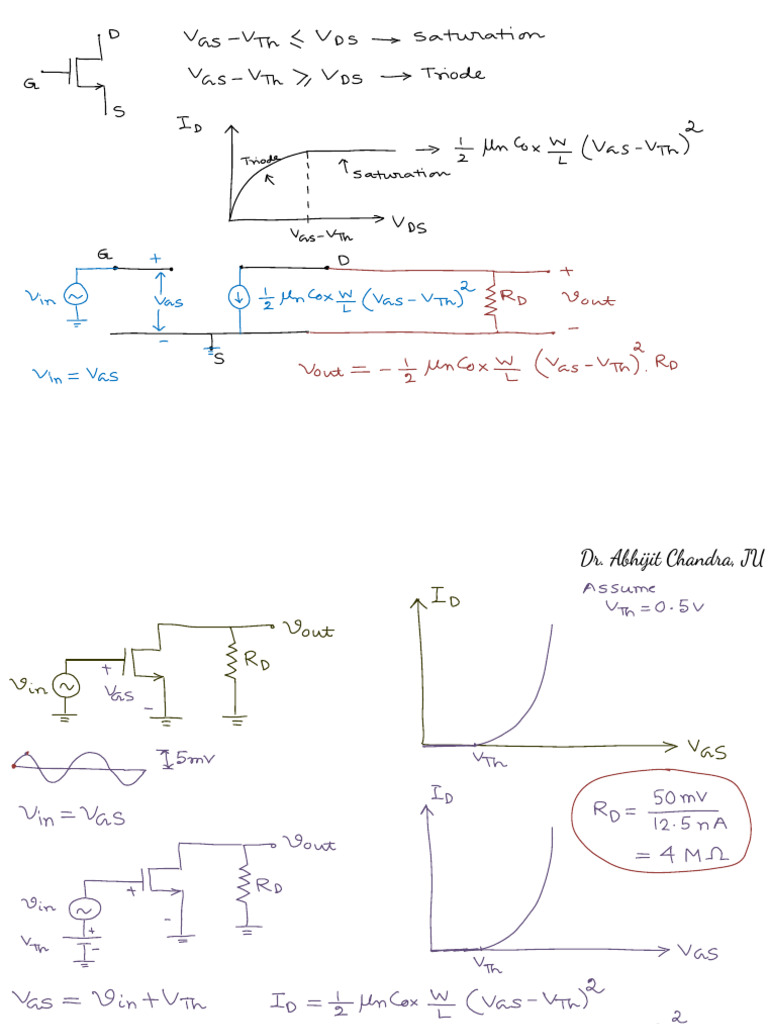 D
V_GS - V_Th ≤ V_DS → saturation
G
V_GS - V_Th ≥ V_DS → Triode
S
I_D
Triode
saturation
→ 1/2 μn Cox W/L (V_GS - V_Th)^2
V_GS - V_Th
V_DS
G + D +
vin V_GS 1/2 μn Cox W/L (V_GS - V_Th)^2 R_D vout
- S -
vin = V_GS
vout = - 1/2 μn Cox W/L (V_GS - V_Th)^2 . R_D
Dr. Abhijit Chandra, JU
Assume
V_Th = 0.5V
I_D
vout
R_D
vin + V_GS -
V_Th V_GS
5mV
vin = V_GS
I_D
R_D = 50mV / 12.5nA
= 4 MΩ
vout
R_D
vin + -
V_Th + -
V_Th V_GS
V_GS = vin + V_Th
I_D = 1/2 μn Cox W/L (V_GS - V_Th)^2
2